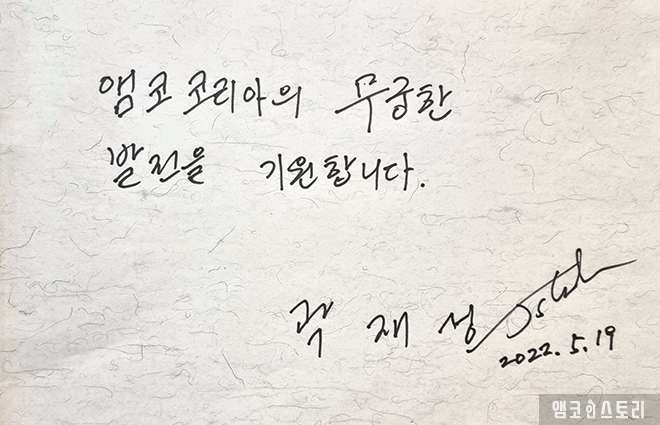 앰코코리아의 무궁한
발전을 기원합니다.
곽재성
2022.5.19
앰코인스토리